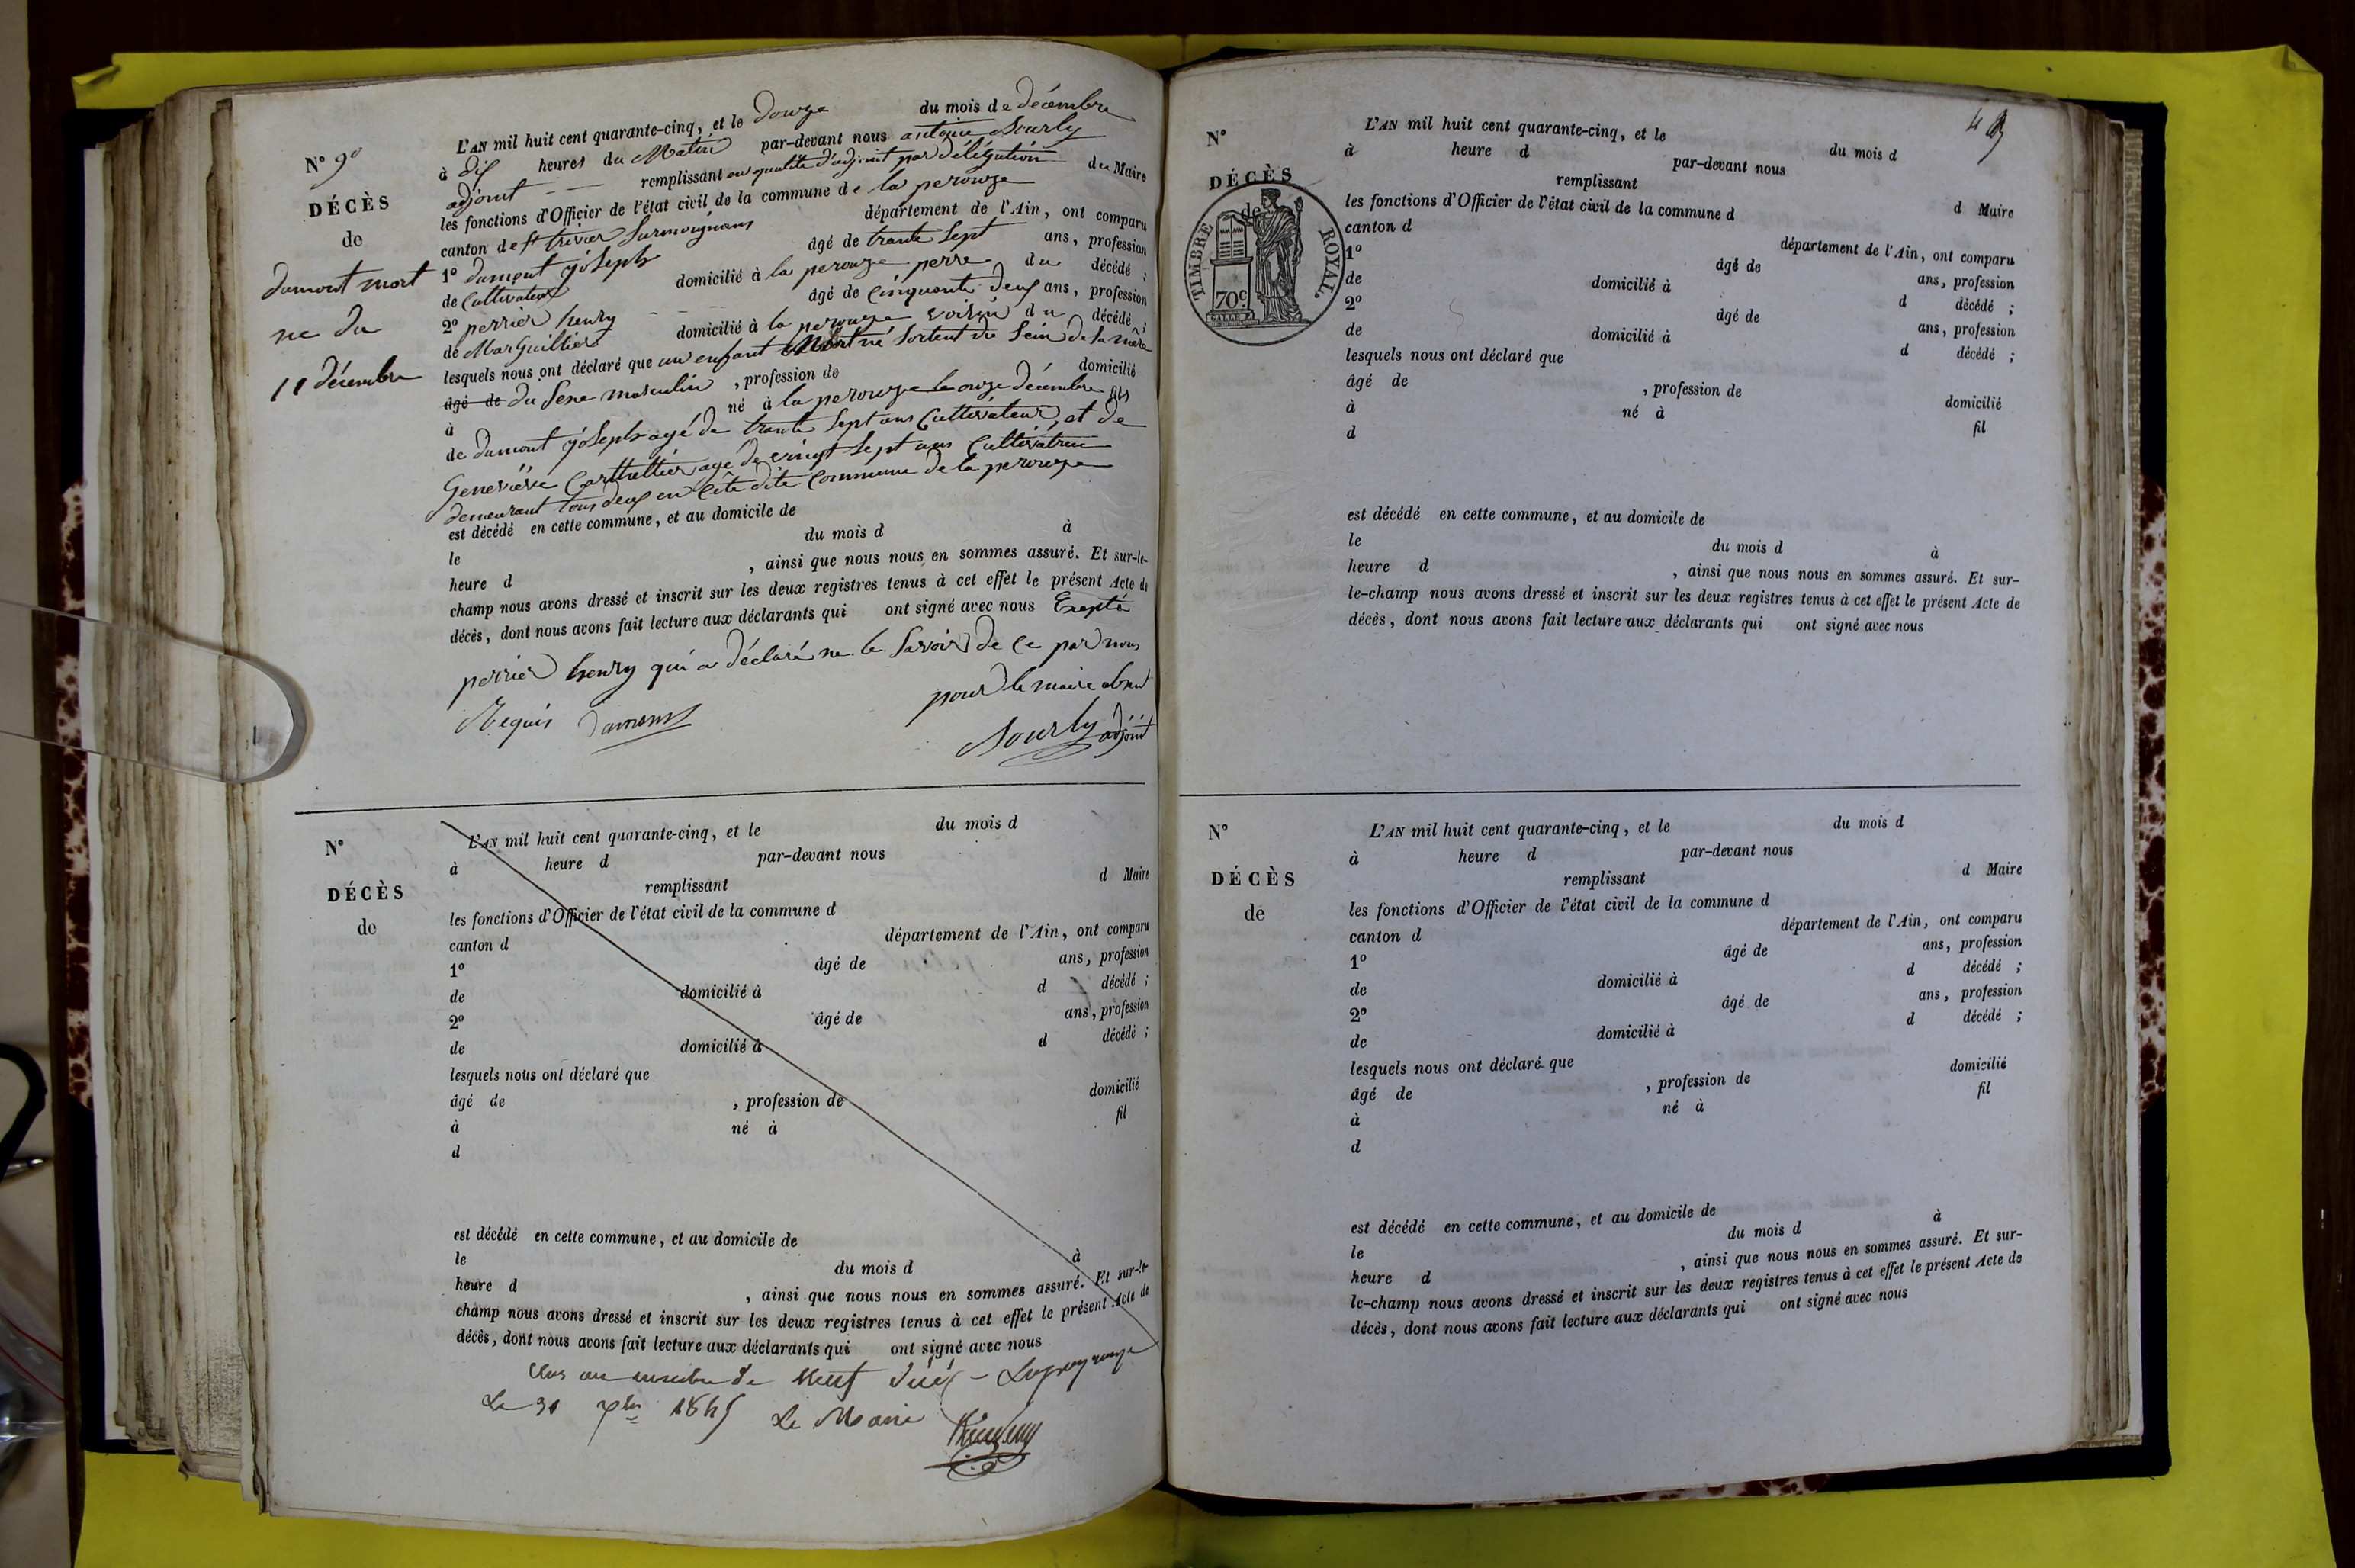 N° 9e
DÉCÈS
de
dumont mort
né du
11 décembre
L'AN mil huit cent quarante-cinq, et le douze du mois de décembre
à dix heures du Matin par-devant nous antoine Sourly
adjoint remplissant en qualité d'adjoint par délégation du Maire
les fonctions d'Officier de l'état civil de la commune de la perouze
canton de st trivier surmoignans département de l'Ain, ont comparu
1° dumont joseph âgé de trante sept ans, profession
de Cultivateur domicilié à la perouze perre du décédé ;
2° perrier henry âgé de Cinquante deux ans, profession
de Marguillier domicilié à la perouze voisin du décédé ;
lesquels nous ont déclaré que un enfant Mort né sortent du sein de sa mère
âgé de du sexe masculin , profession de domicilié
à né à la perouze le onze décembre fils
de dumont joseph agé de trante sept ans Cultivateur, et de
Geneviève Carthellier agé de vingt sept ans Cultivatrice
demeurant tous deux en cête dite Commune de la perouze
est décédé en cette commune, et au domicile de
le du mois d à
heure d , ainsi que nous nous en sommes assuré. Et sur-le-
champ nous avons dressé et inscrit sur les deux registres tenus à cet effet le présent Acte de
décès, dont nous avons fait lecture aux déclarants qui ont signé avec nous Exepté
perrier henry qui a déclaré ne le savoir de ce par nous
Requis Dumont pour le maire absent
Sourly adjoint
N°
DÉCÈS
de
L'AN mil huit cent quarante-cinq, et le du mois d
à heure d par-devant nous
remplissant d Maire
les fonctions d'Officier de l'état civil de la commune d
canton d département de l'Ain, ont comparu
1° âgé de ans, profession
de domicilié à d décédé ;
2° âgé de ans, profession
de domicilié à d décédé ;
lesquels nous ont déclaré que
âgé de , profession de domicilié
à né à fil
d
est décédé en cette commune, et au domicile de
le du mois d à
heure d , ainsi que nous nous en sommes assuré. Et sur-le-
champ nous avons dressé et inscrit sur les deux registres tenus à cet effet le présent Acte de
décès, dont nous avons fait lecture aux déclarants qui ont signé avec nous
Clos au nombre de Neuf décés - Laperouze
Le 31 xbre 1845 Le Maire
N°
DÉCÈS
de
TIMBRE ROYAL.
70c
L'AN mil huit cent quarante-cinq, et le du mois d
à heure d par-devant nous
remplissant d Maire
les fonctions d'Officier de l'état civil de la commune d
canton d département de l'Ain, ont comparu
1° âgé de ans, profession
de domicilié à d décédé ;
2° âgé de ans, profession
de domicilié à d décédé ;
lesquels nous ont déclaré que
âgé de , profession de domicilié
à né à fil
d
est décédé en cette commune, et au domicile de
le du mois d à
heure d , ainsi que nous nous en sommes assuré. Et sur-
le-champ nous avons dressé et inscrit sur les deux registres tenus à cet effet le présent Acte de
décès, dont nous avons fait lecture aux déclarants qui ont signé avec nous
N°
DÉCÈS
de
L'AN mil huit cent quarante-cinq, et le du mois d
à heure d par-devant nous
remplissant d Maire
les fonctions d'Officier de l'état civil de la commune d
canton d département de l'Ain, ont comparu
1° âgé de ans, profession
de domicilié à d décédé ;
2° âgé de ans, profession
de domicilié à d décédé ;
lesquels nous ont déclaré que
âgé de , profession de domicilié
à né à fil
d
est décédé en cette commune, et au domicile de
le du mois d à
heure d , ainsi que nous nous en sommes assuré. Et sur-
le-champ nous avons dressé et inscrit sur les deux registres tenus à cet effet le présent Acte de
décès, dont nous avons fait lecture aux déclarants qui ont signé avec nous